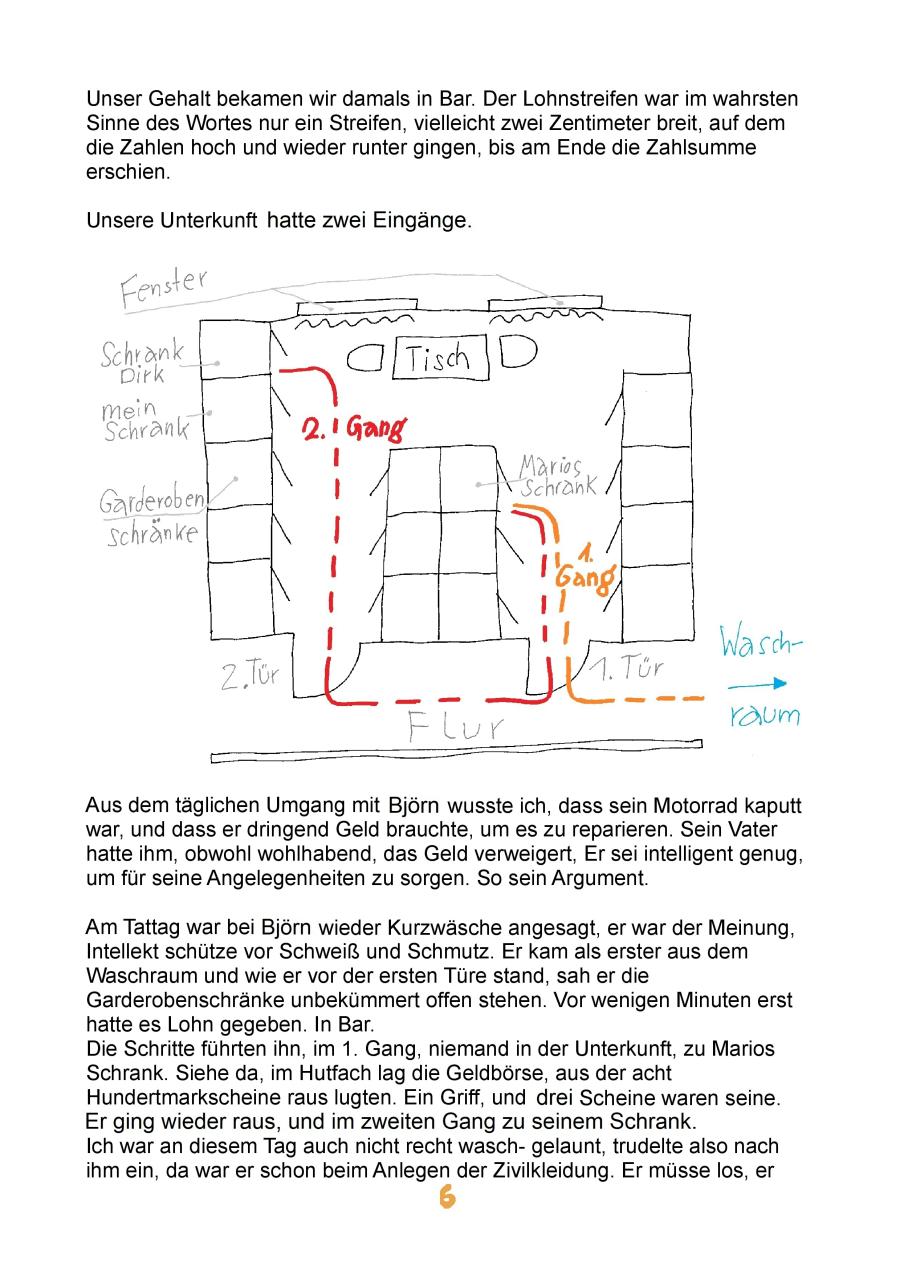 Unser Gehalt bekamen wir damals in Bar. Der Lohnstreifen war im wahrsten
Sinne des Wortes nur ein Streifen, vielleicht zwei Zentimeter breit, auf dem
die Zahlen hoch und wieder runter gingen, bis am Ende die Zahlsumme
erschien.
Unsere Unterkunft hatte zwei Eingänge.
Fenster
Schrank
Dirk
Tisch
mein
Schrank
2. Gang
Marios
Schrank
Garderoben
schränke
1.
Gang
Wasch-
2. Tür
1. Tür
raum
Flur
Aus dem täglichen Umgang mit Björn wusste ich, dass sein Motorrad kaputt
war, und dass er dringend Geld brauchte, um es zu reparieren. Sein Vater
hatte ihm, obwohl wohlhabend, das Geld verweigert, Er sei intelligent genug,
um für seine Angelegenheiten zu sorgen. So sein Argument.
Am Tattag war bei Björn wieder Kurzwäsche angesagt, er war der Meinung,
Intellekt schütze vor Schweiß und Schmutz. Er kam als erster aus dem
Waschraum und wie er vor der ersten Türe stand, sah er die
Garderobenschränke unbekümmert offen stehen. Vor wenigen Minuten erst
hatte es Lohn gegeben. In Bar.
Die Schritte führten ihn, im 1. Gang, niemand in der Unterkunft, zu Marios
Schrank. Siehe da, im Hutfach lag die Geldbörse, aus der acht
Hundertmarkscheine raus lugten. Ein Griff, und drei Scheine waren seine.
Er ging wieder raus, und im zweiten Gang zu seinem Schrank.
Ich war an diesem Tag auch nicht recht wasch- gelaunt, trudelte also nach
ihm ein, da war er schon beim Anlegen der Zivilkleidung. Er müsse los, er
6